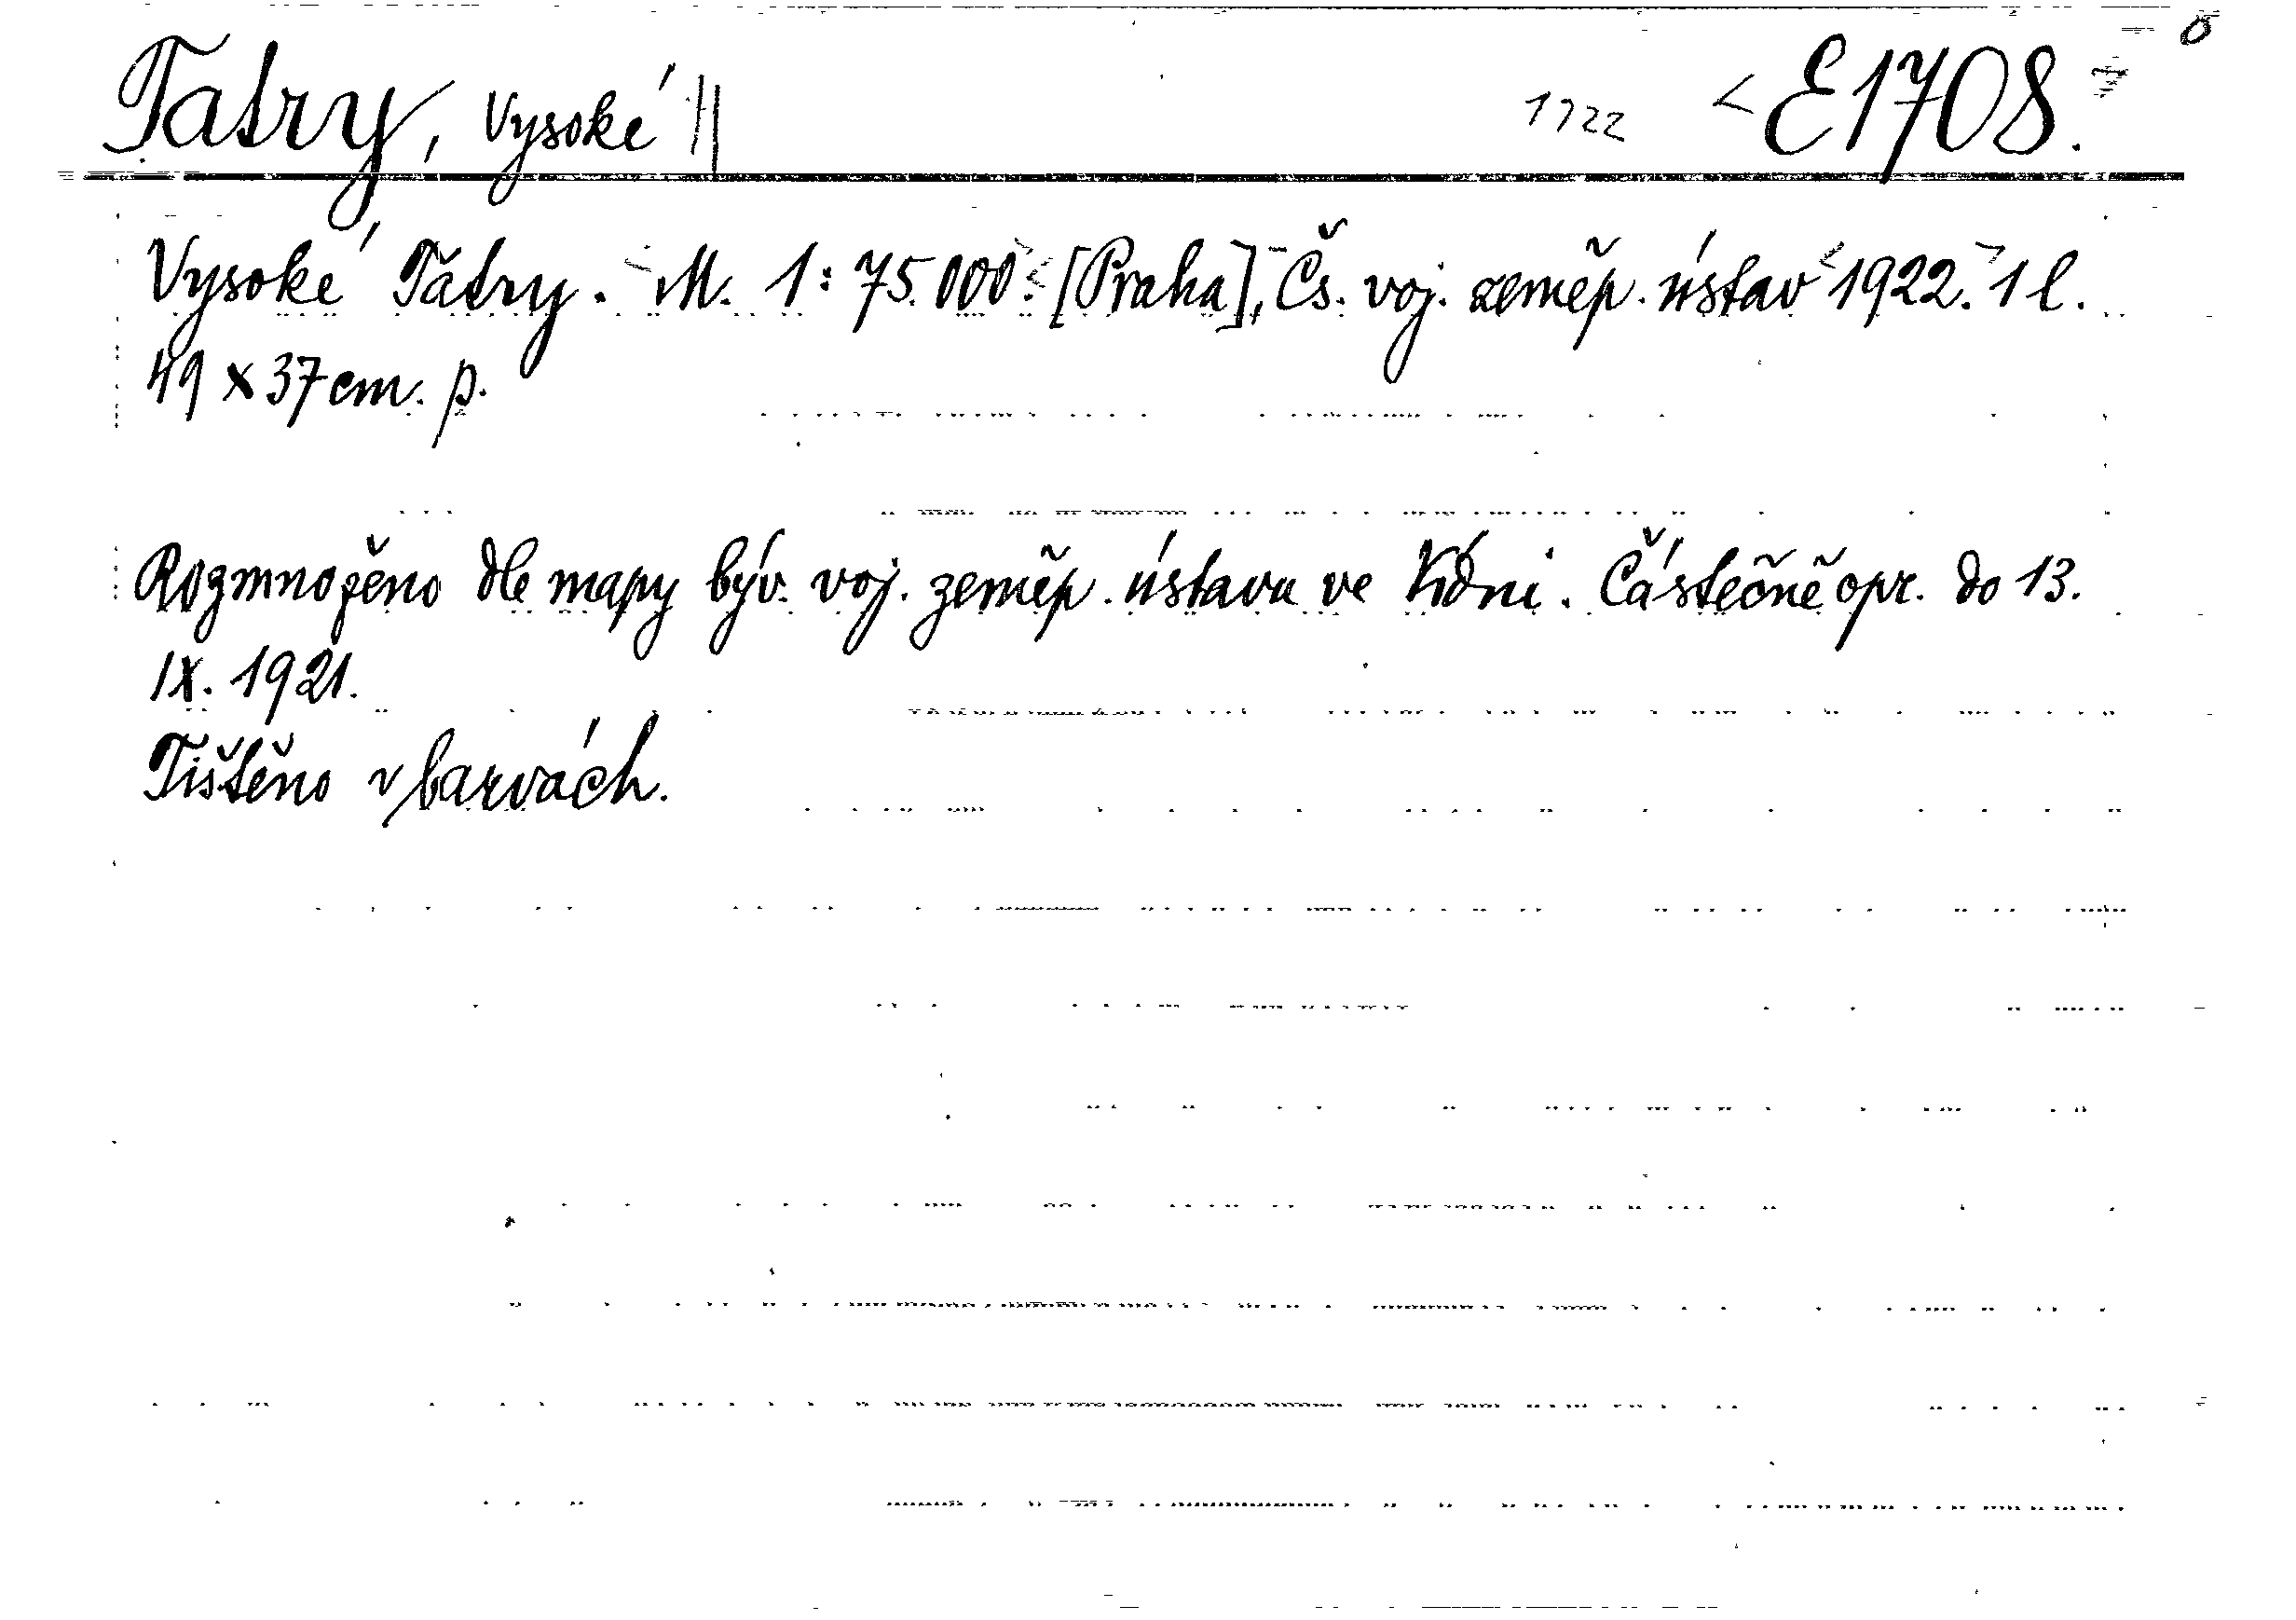 Tatry, Vysoké 1922 E1708.
Vysoké Tatry. M. 1:75.000. [Praha], Čs. voj. zeměp. ústav 1922. 1 l.
49 x 37 cm. p.
Rozmnoženo dle mapy býv. voj. zeměp. ústavu ve Vídni. Částečně opr. do 13.
IX. 1921.
Tištěno v barvách.